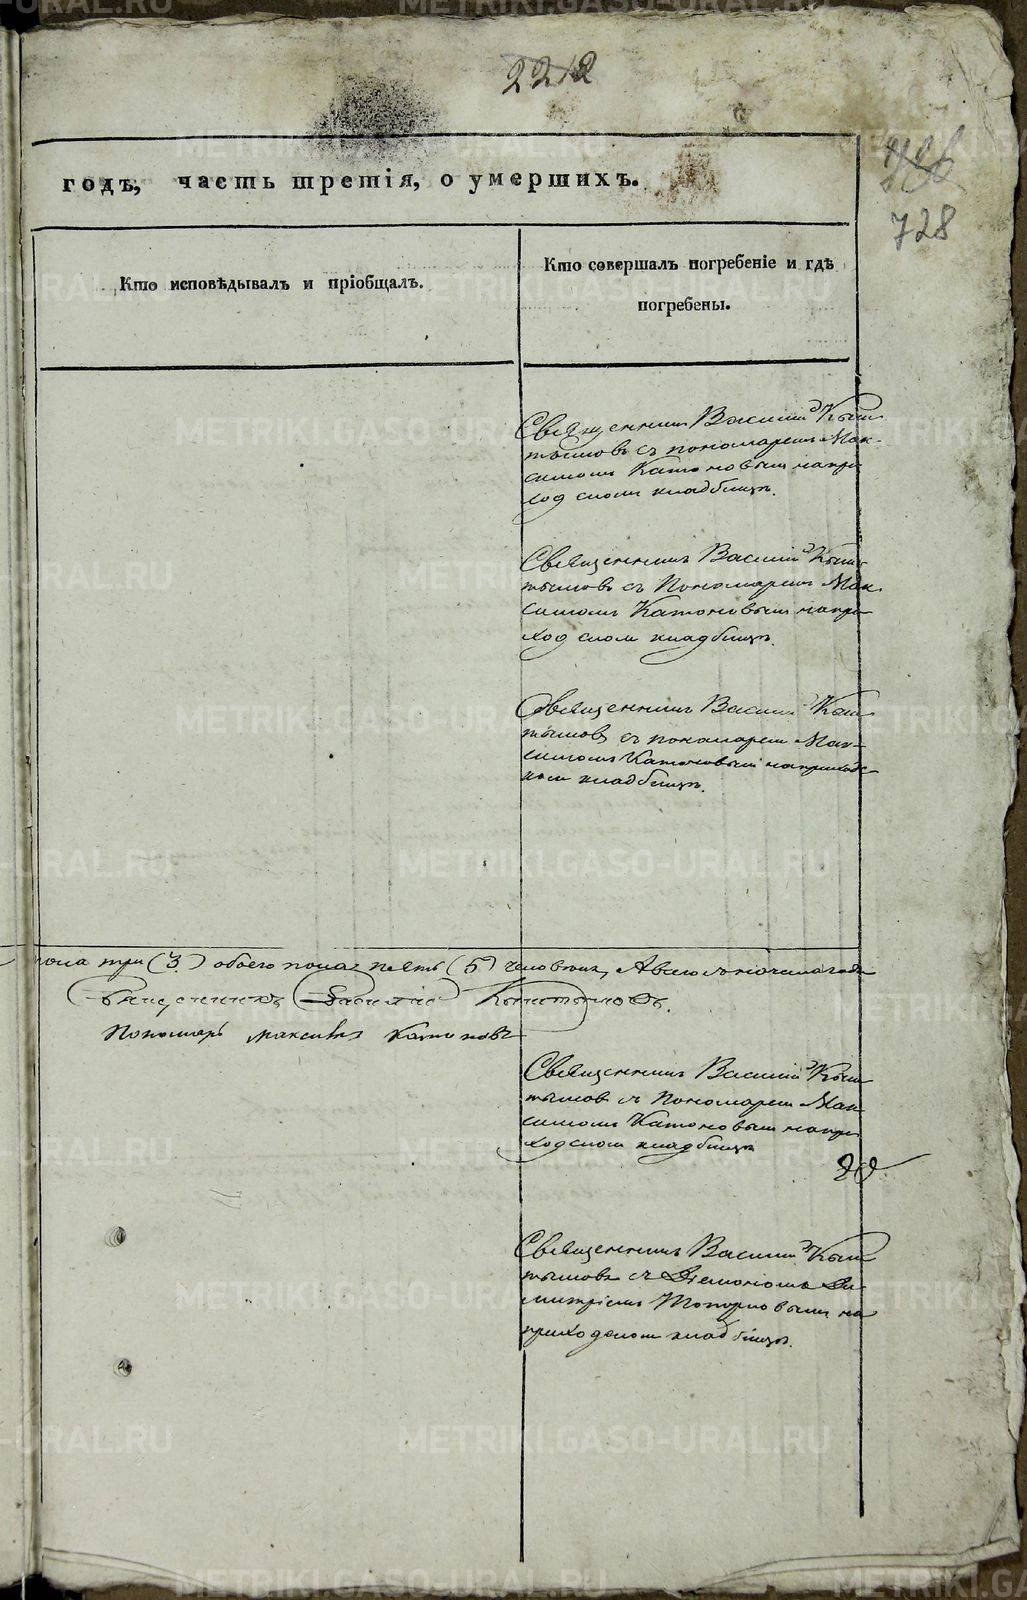 2212
728
годъ, часть третія, о умершихъ.
Кто исповѣдывалъ и пріобщалъ.
Кто совершалъ погребеніе и гдѣ
погребены.
Священникъ Василій Кыш
тымовъ съ пономаремъ Мак-
симомъ Катоновымъ напри
ход скомъ кладбищѣ.
Священникъ Василій Кыш
тымовъ съ Пономаремъ Мак
симомъ Катоновымъ напри
ход ском кладбищѣ.
Священникъ Василій Кыш
тымовъ съ пономарем Мак-
симомъ Катоновымъ наприходс
ком кладбищѣ.
пола три (3) обоего пола пять (5) человѣкъ, А всего сначала года
Священникъ Василій Кыштымовъ.
Пономарь Максимъ Катоновъ
Священникъ Василій Кыш
тымов съ Пономарем Мак
симомъ Катоновым напри
ходском кладбищѣ
Священникъ Василій Кыш
тымовъ съ Діакономъ Ди
митріемъ Топорковымъ на
приходском кладбищѣ.
METRIKI.GASO-URAL.RU